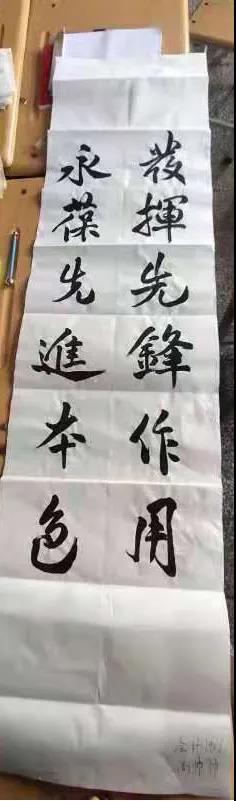 發揮先鋒作用
永葆先進本色